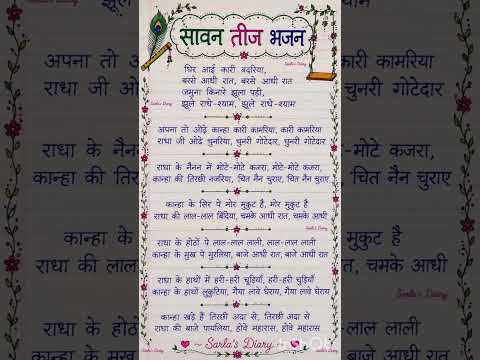 सावन तीज भजन
Sarla's Diary
घिर आई कारी बदरिया,
बरसे आधी रात, बरसे आधी रात
जमुना किनारे झूला पड़ी,
Sarla's Diary
झूले राधे-श्याम, झूले राधे-श्याम
अपना तो ओढ़े कान्हा कारी कामरिया, कारी कामरिया
राधा जी ओढे चुनरिया, चुनरी गोटेदार, चुनरी गोटेदार
राधा के नैनन में मोटे-मोटे कजरा, मोटे-मोटे कजरा,
कान्हा की तिरछी नजरिया, चित नैन चुराए, चित नैन चुराए
कान्हा के सिर पे मोर मुकुट है, मोर मुकुट है
राधा की लाल-लाल बिंदिया, चमके आधी रात, चमके आधी
राधा के होठों पे लाल-लाल लाली, लाल-लाल लाली
कान्हा के मुख पे मुरलिया, बाजे आधी रात, बाजे आधी रात
राधा के हाथों में हरी-हरी चूड़ियाँ, हरी-हरी चूड़ियाँ
कान्हा के हाथों लुकुटिया, गैया लावे घेराय, गैया लावे घेराय
कान्हा खड़े हैं तिरछी अदा से, तिरछी अदा से
राधा की बाजे पायलिया, होवे महारास, होवे महारास
~ Sarla's Diary
अपना तो ओ
कारी कामरिया
राधा जी ओढे
चुनरी गोटेदार
राधा के नैनन
मोटे कजरा,
कान्हा की तिरछ
नैन चुराए
कान्हा के
मुकुट है
राधा की लाल
चमके आधी
राधा के होठ
लाल लाली
कान्हा के मुख